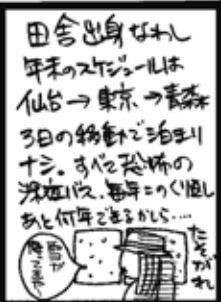 田舎出身なわし
年末のスケジュールは
仙台→東京→青森
3日の移動で泊まり
ナシ。すべて恐怖の
深夜バス。毎年このくり返し
あと何年できるかしら……
たそがれ
雪が
降ってきた